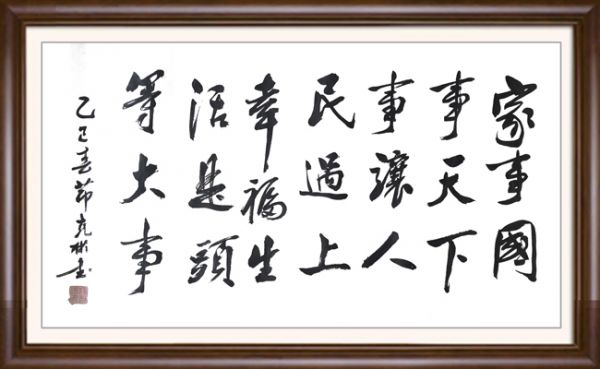 家事國
事天下
事讓人
民過上
幸福生
活是頭
等大事
乙巳春節克彬书